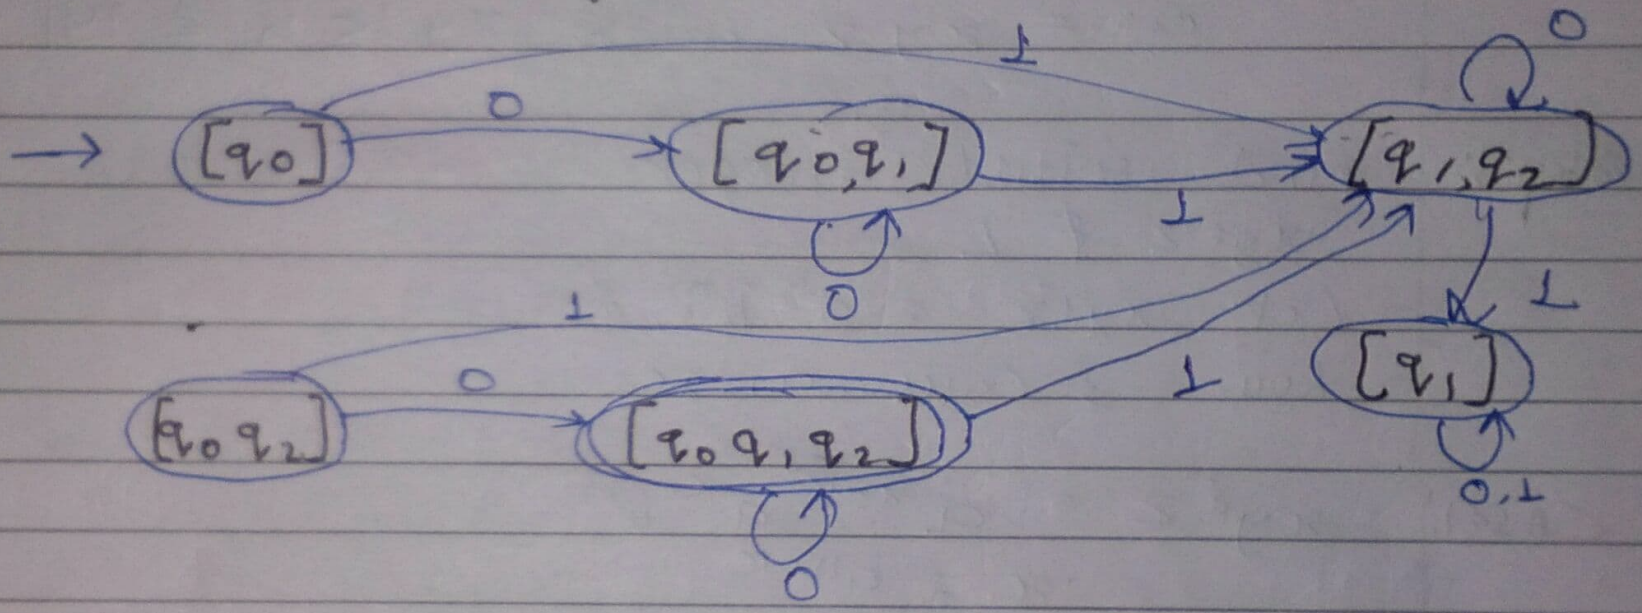 1 0
0
→ [q0] [q0,q1] [q1,q2]
1
0
1 1
0 1 [q1]
[q0 q2] [q0 q1 q2]
0,1
0